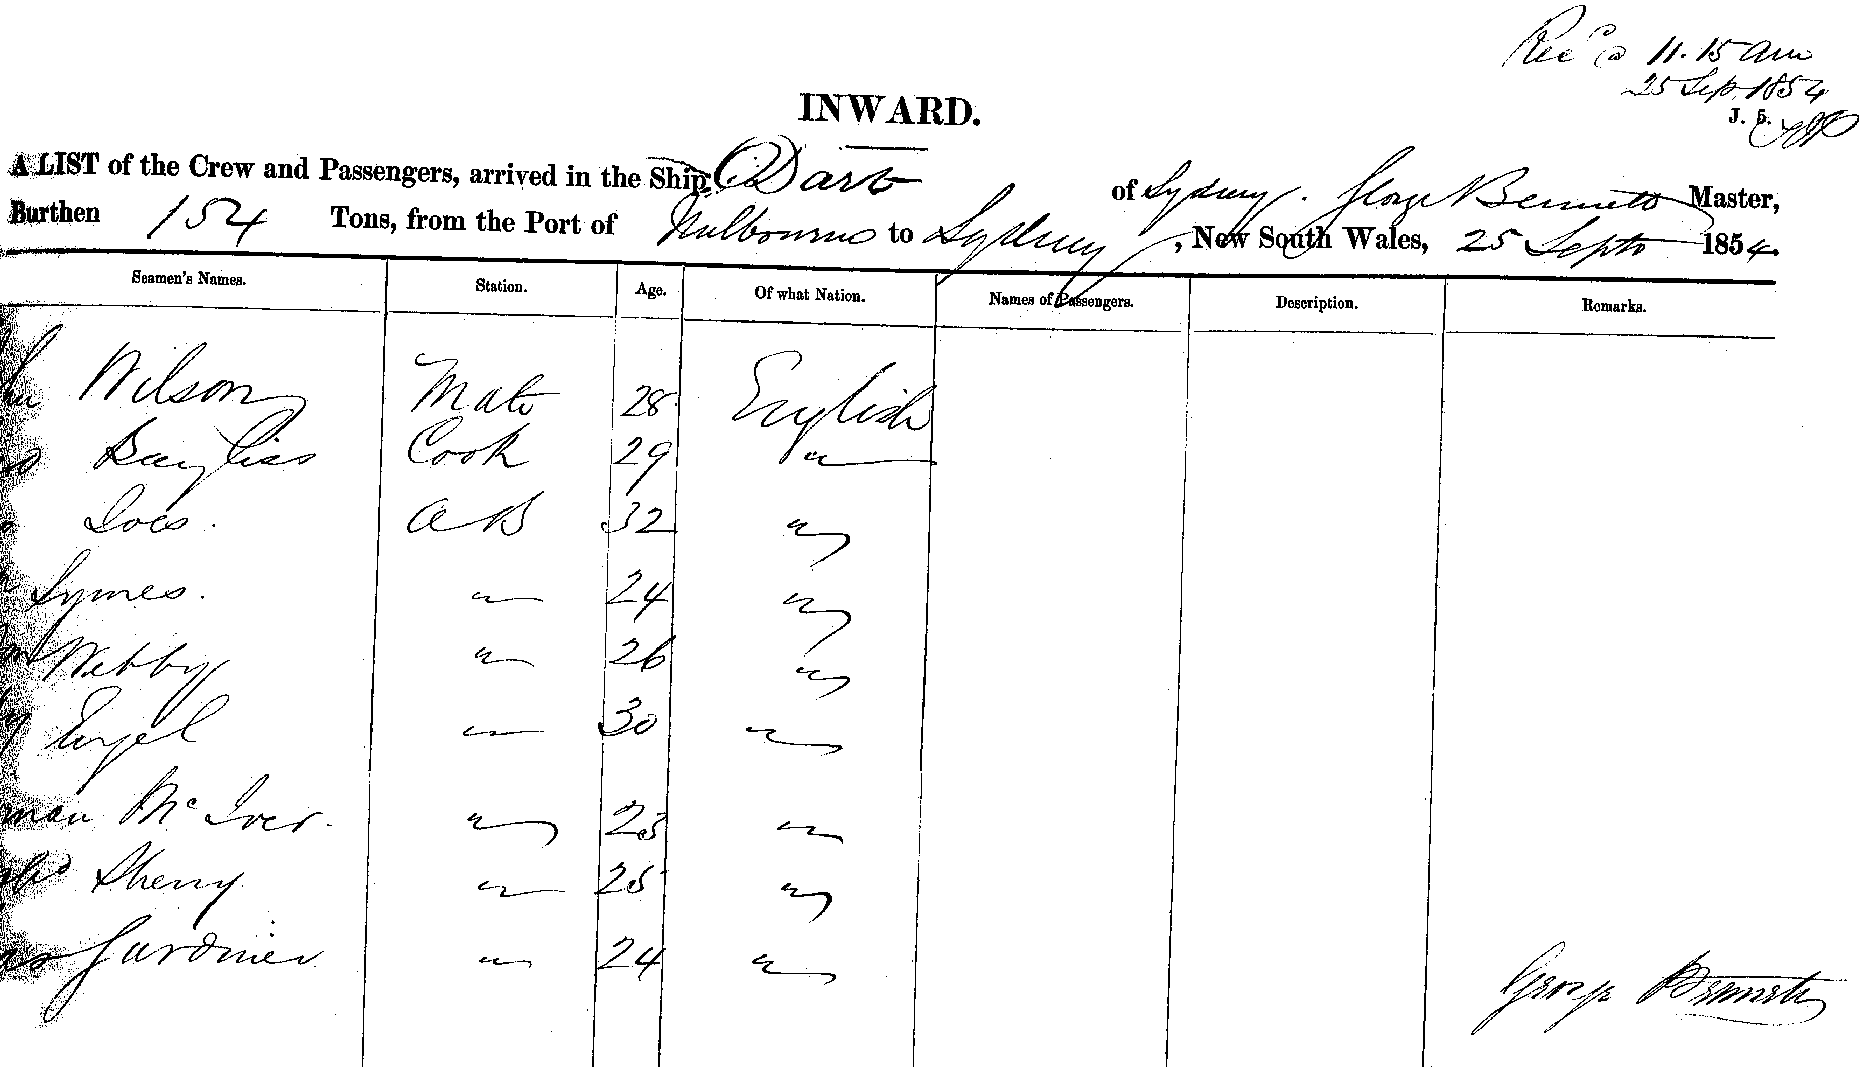 Recd @ 11.15 am
25 Sep 1854
J. 5.
INWARD.
A LIST of the Crew and Passengers, arrived in the Ship Dart of Sydney. George Bennett Master,
Burthen 154 Tons, from the Port of Melbourne to Sydney, New South Wales, 25 Septr 1854.
Seamen's Names. Station. Age. Of what Nation. Names of Passengers. Description. Remarks.
Wilson Mate 28 English
Bayliss Cook 29 "
Ives. AB 32 "
Symes. " 24 "
Webby " 26 "
" 30 "
man McIver. " 23 "
Sherry " 25 "
Gardiner " 24 "
George Bennett